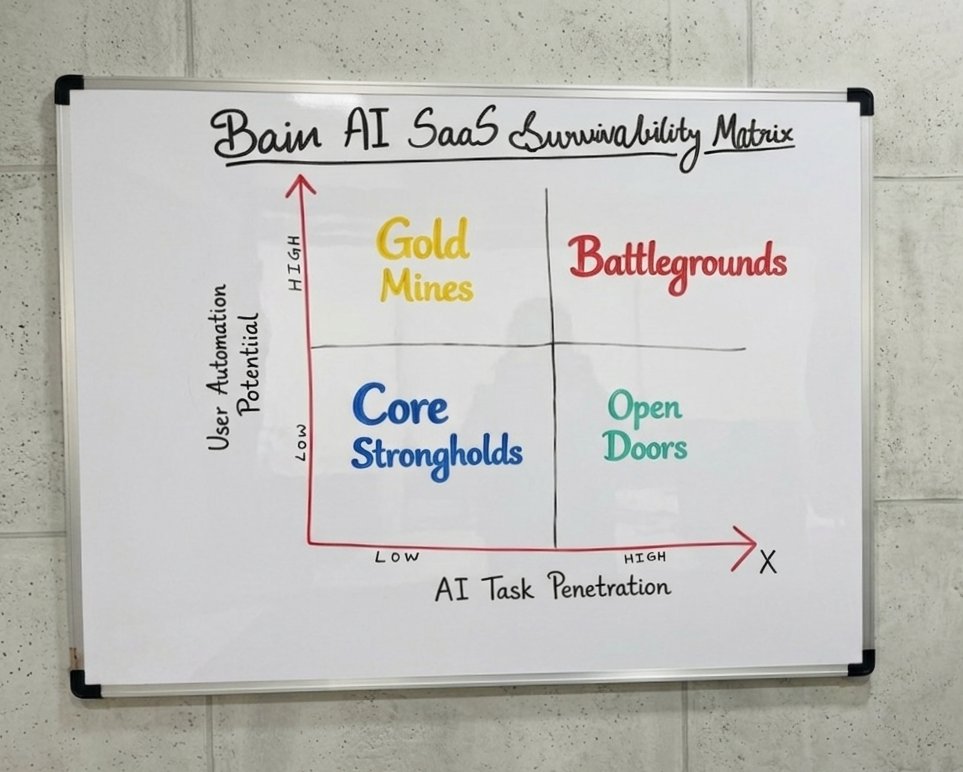 Bain AI SaaS Survivability Matrix
HIGH
Gold
Mines
Battlegrounds
User Automation
Potentiial
LOW
Core
Strongholds
Open
Doors
LOW
HIGH
X
AI Task Penetration